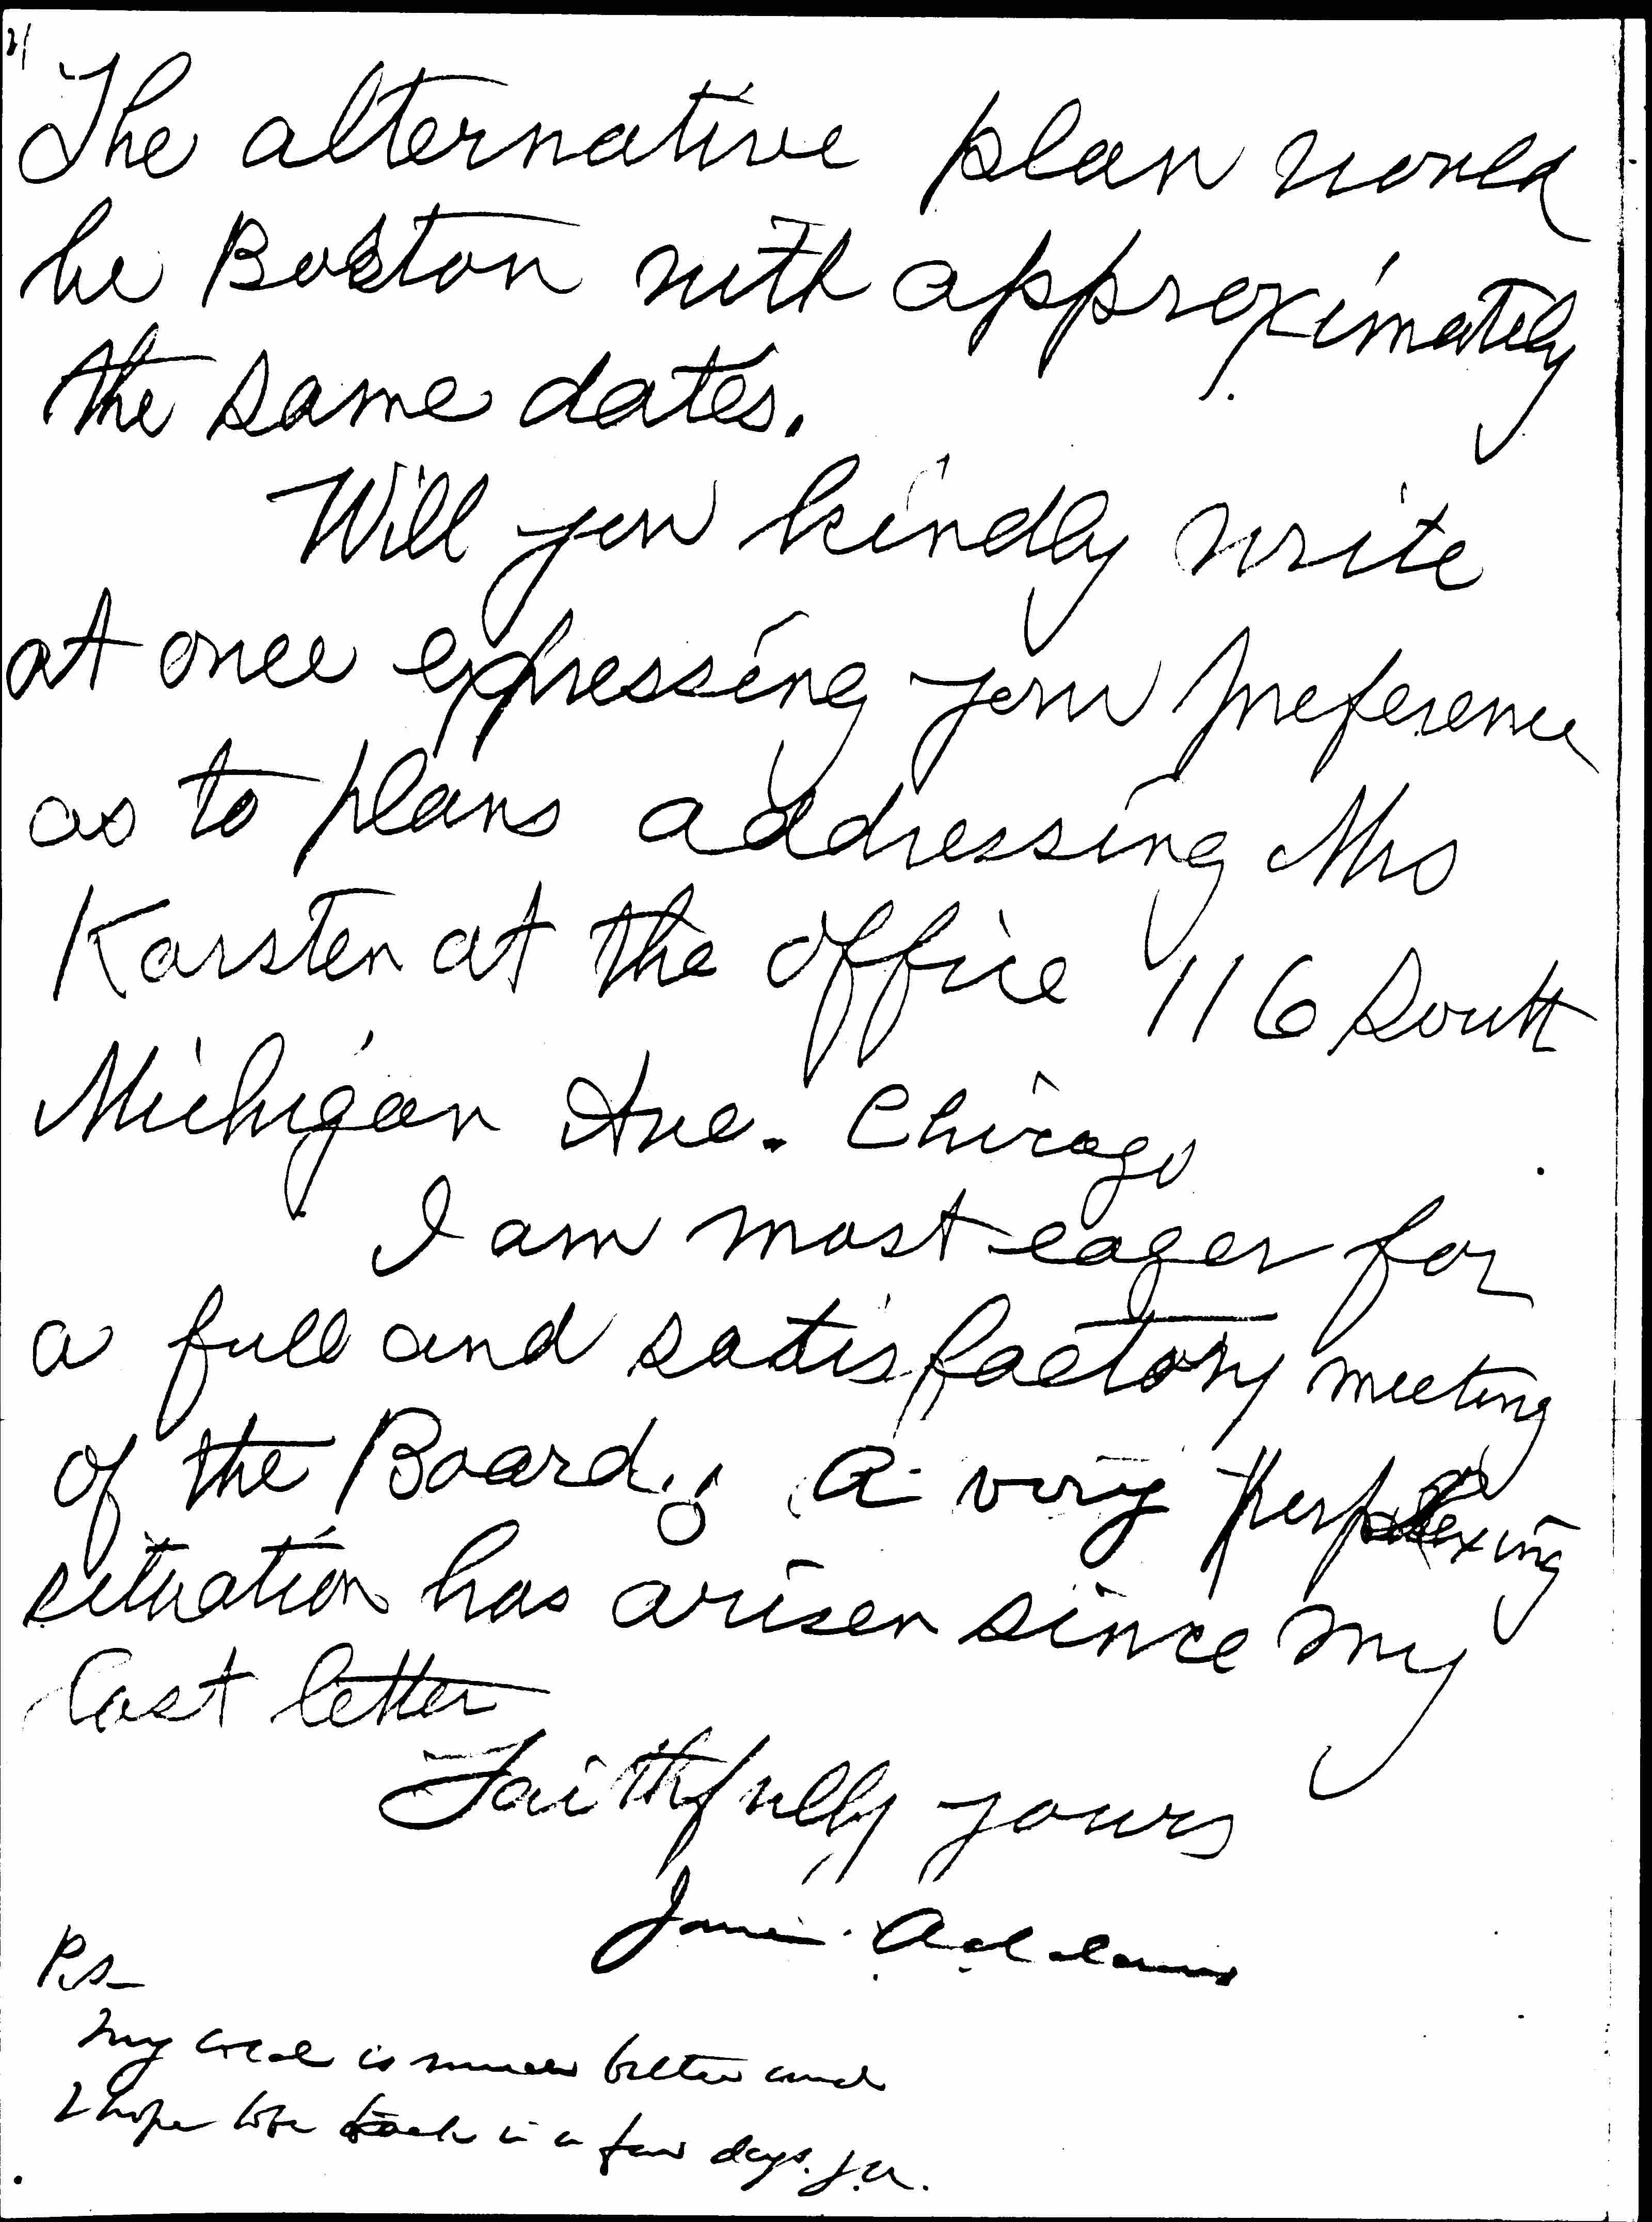 2/
The alternative plan would
be Boston with approximately
the same dates.
Will you kindly write
at once expressing your preference
as to plans addressing Mrs
Karsten at the office 116 South
Michigan Ave. Chicago
I am most eager for
a full and satisfactory meeting
of the Board; a very perplexing
situation has arisen since my
last letter
Faithfully yours
Jane Addams
P.S.
My cold is much better and
I hope to be back in a few days. J.A.